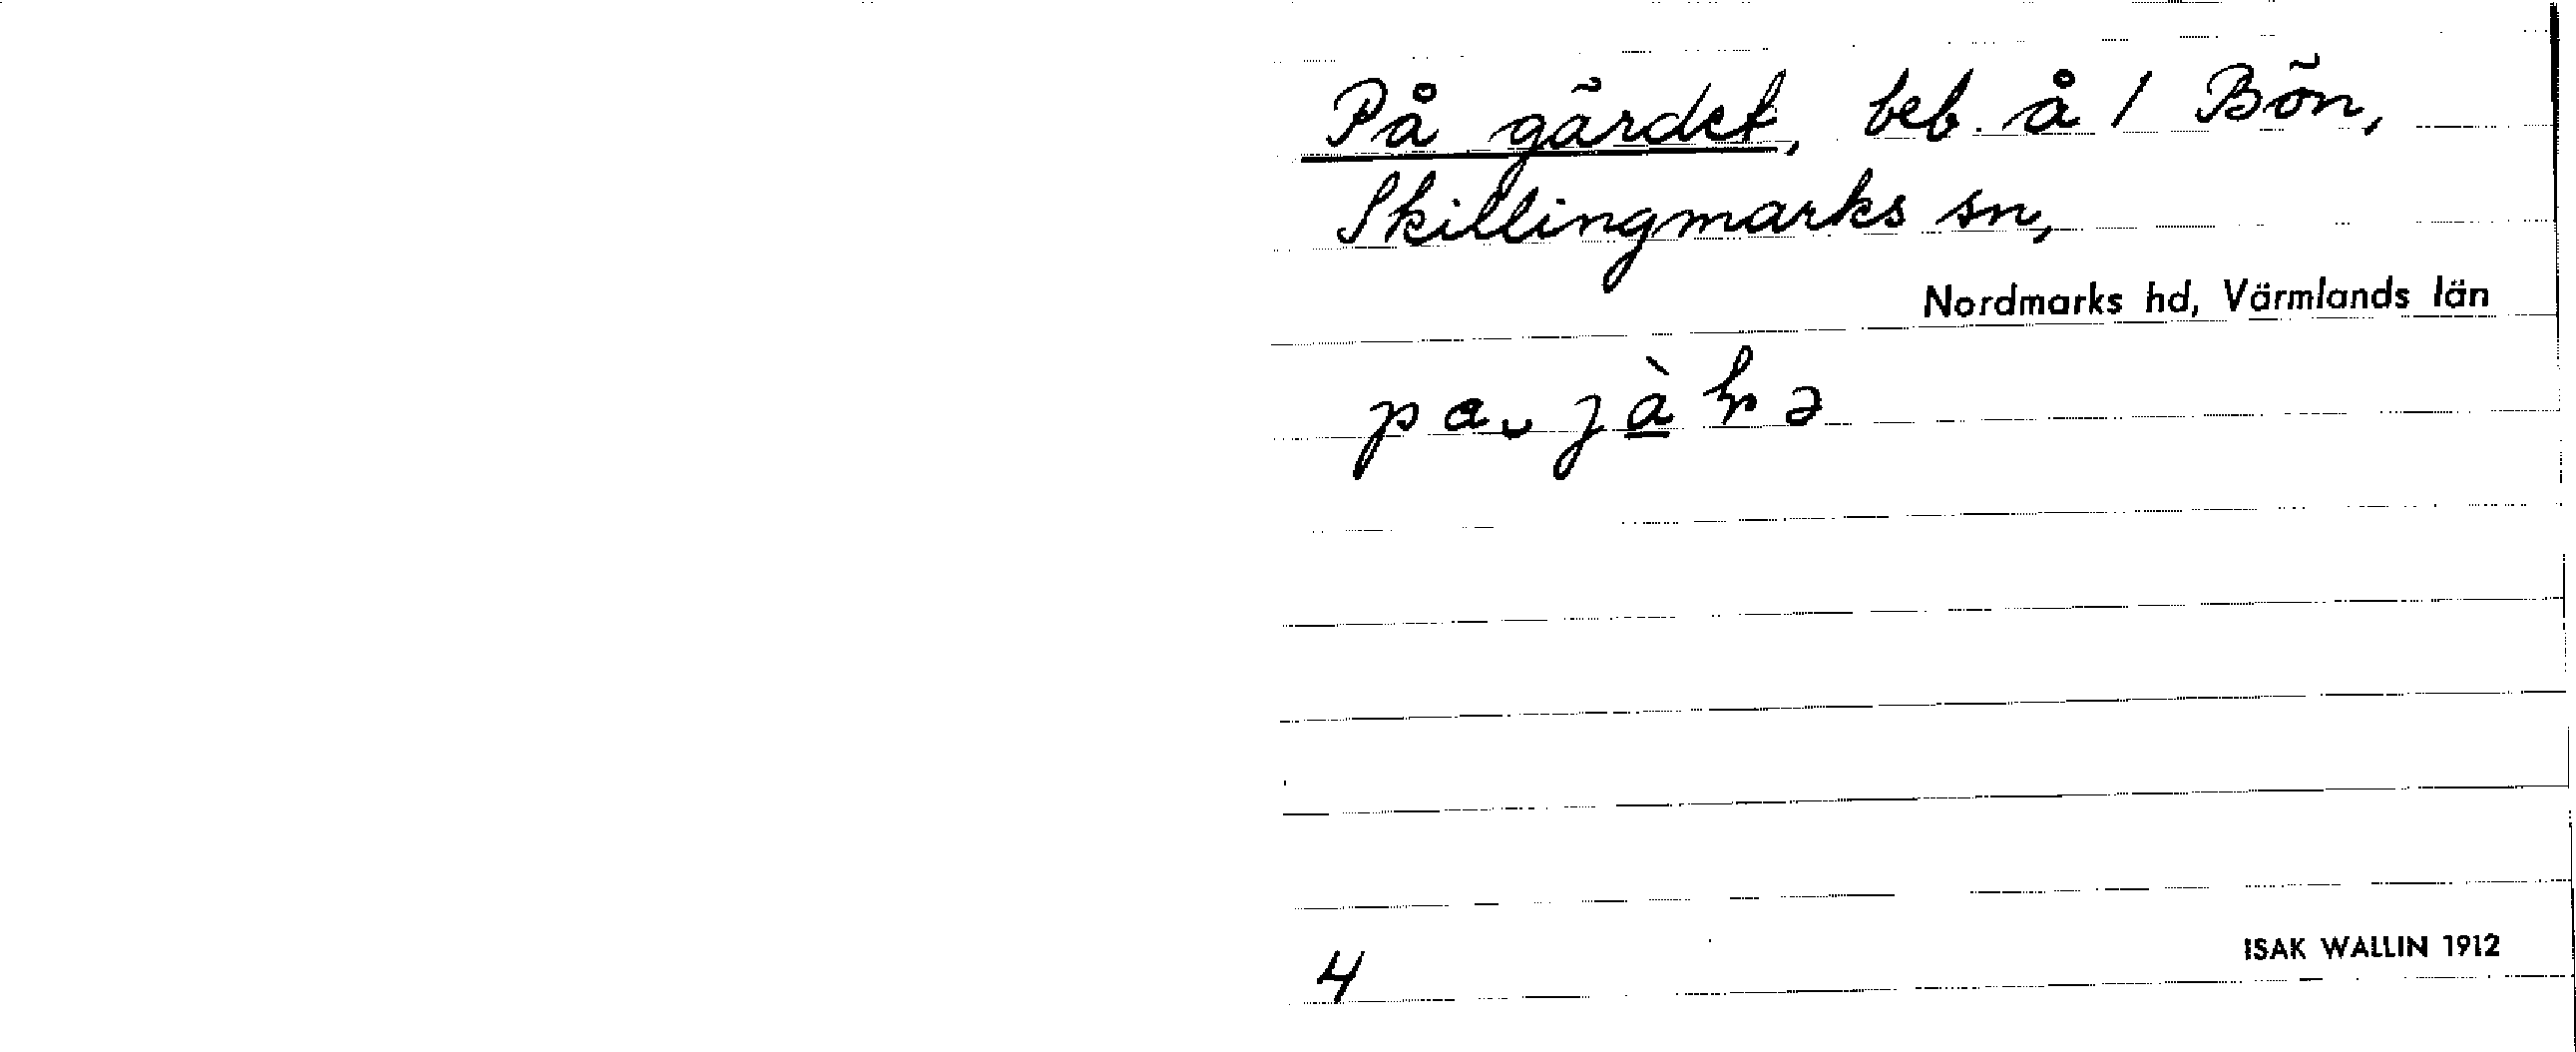 På gärdet, beb. å 1 Bön,
Skillingmarks sn,
Nordmarks hd, Värmlands län
4
ISAK WALLIN 1912